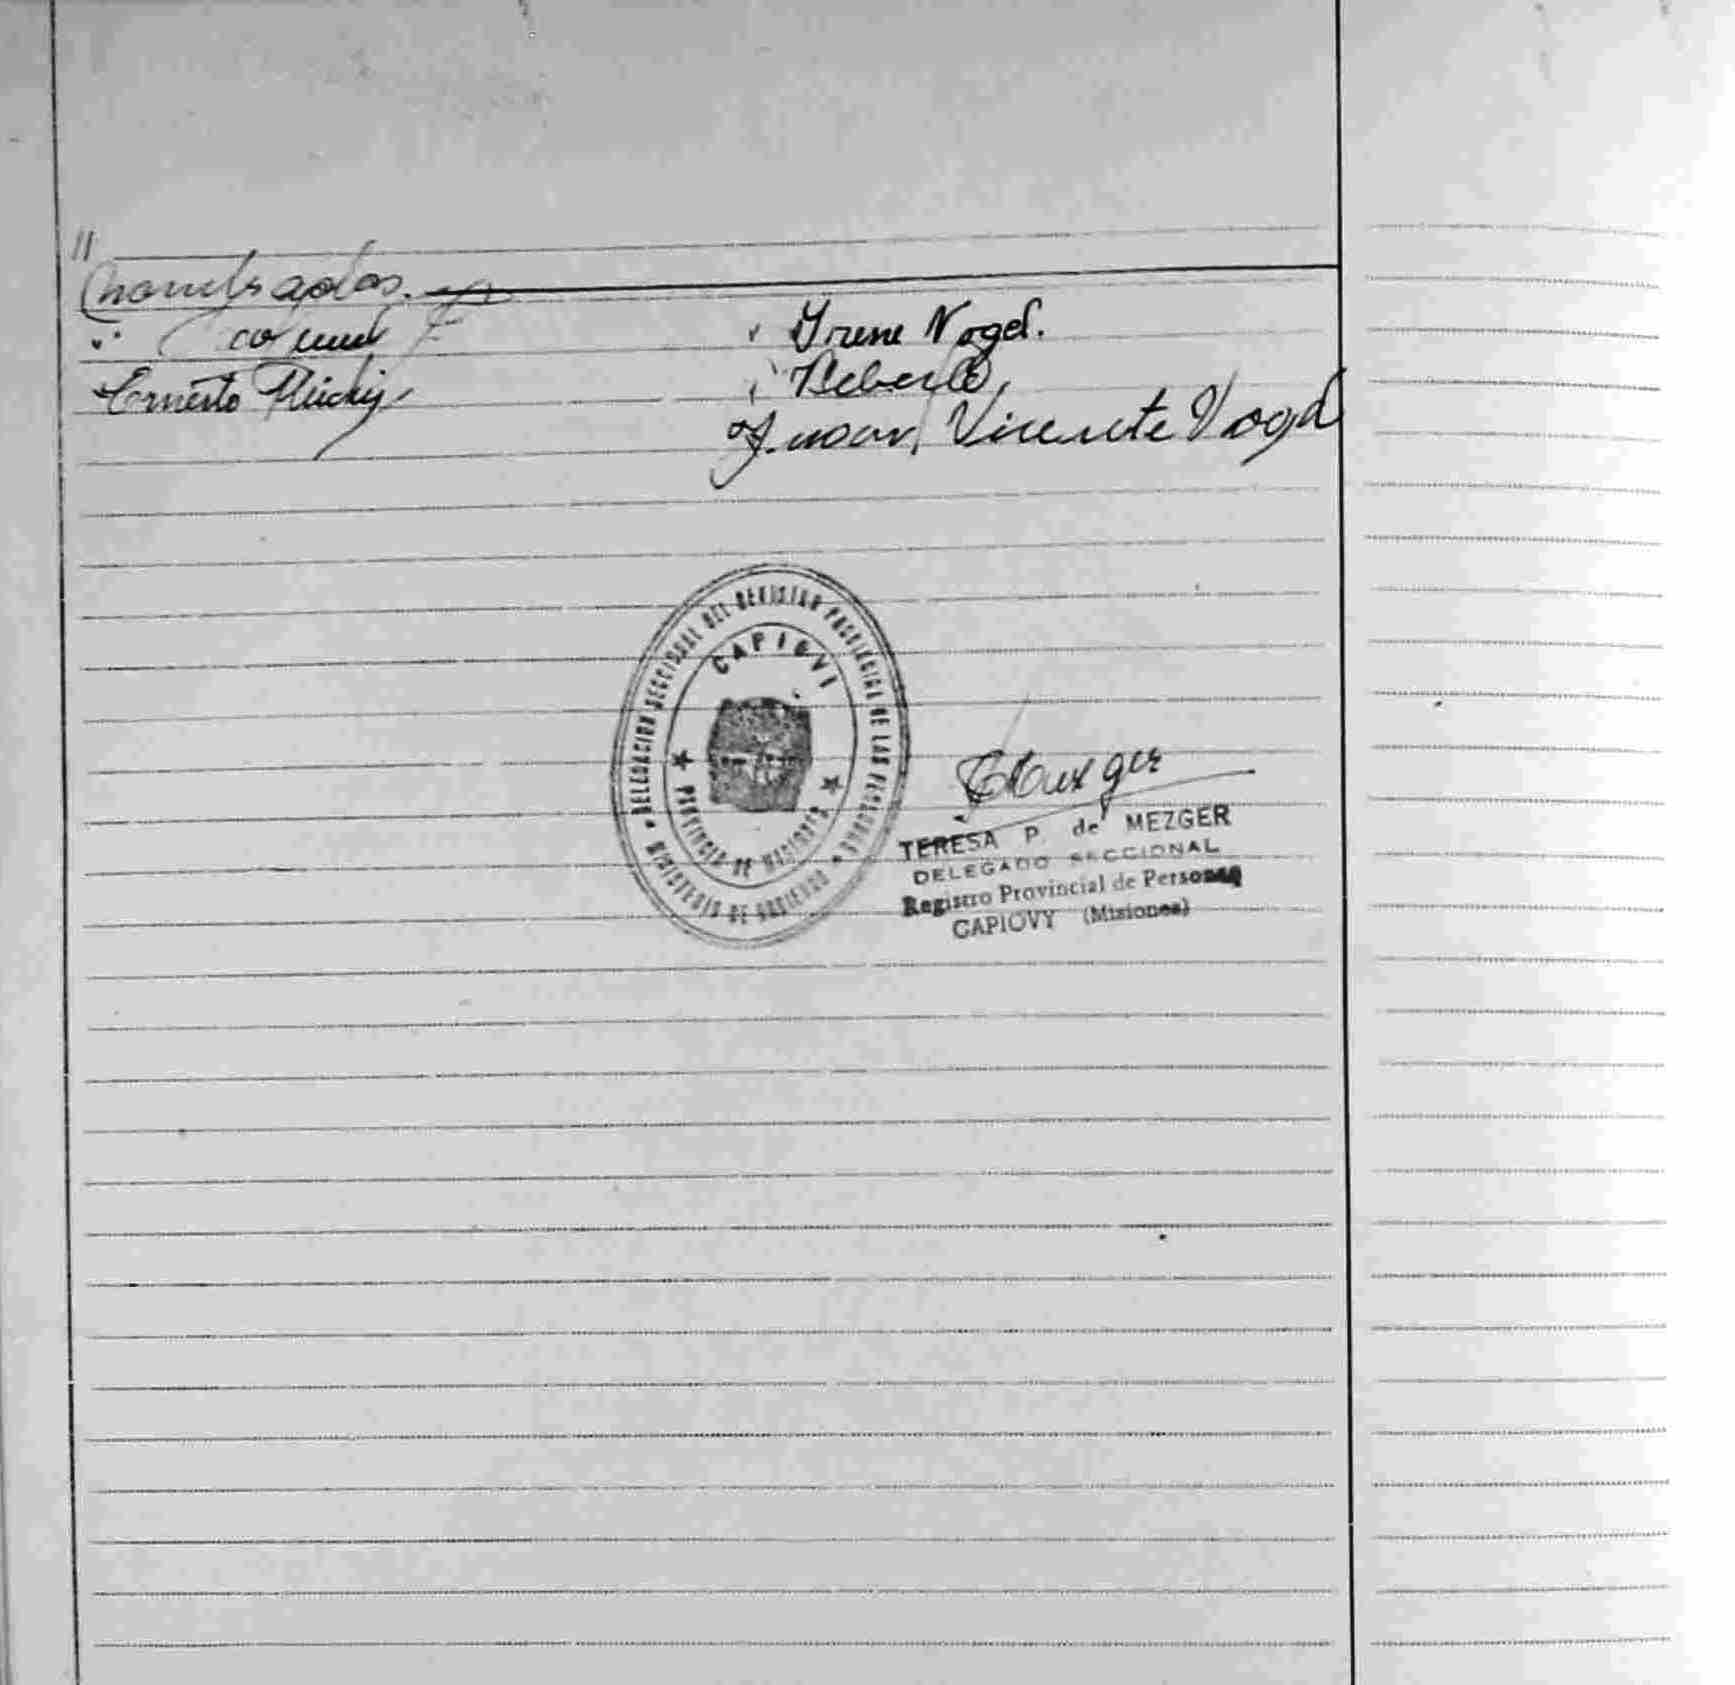 //
nombrados.
Irene Vogel.
Ernesto
Juan Vicente Vogel
DELEGACION SECCIONAL DEL REGISTRO PROVINCIAL DE LAS PERSONAS
MINISTERIO DE GOBIERNO
CAPIOVI
PROVINCIA DE MISIONES
TERESA P. de MEZGER
DELEGADO SECCIONAL
Registro Provincial de Personas
CAPIOVY (Misiones)